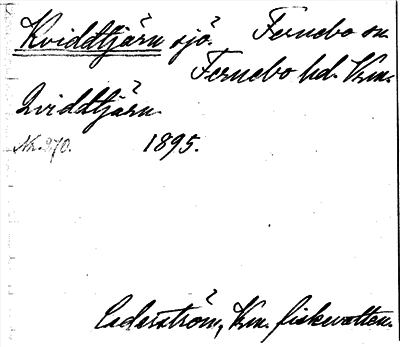 Kviddtjärn sjö. Fernebo sn.
Fernebo hd. Vrm.
Qviddtjärn.
Nr. 270. 1895.
Cederström, Vrm. fiskevatten.